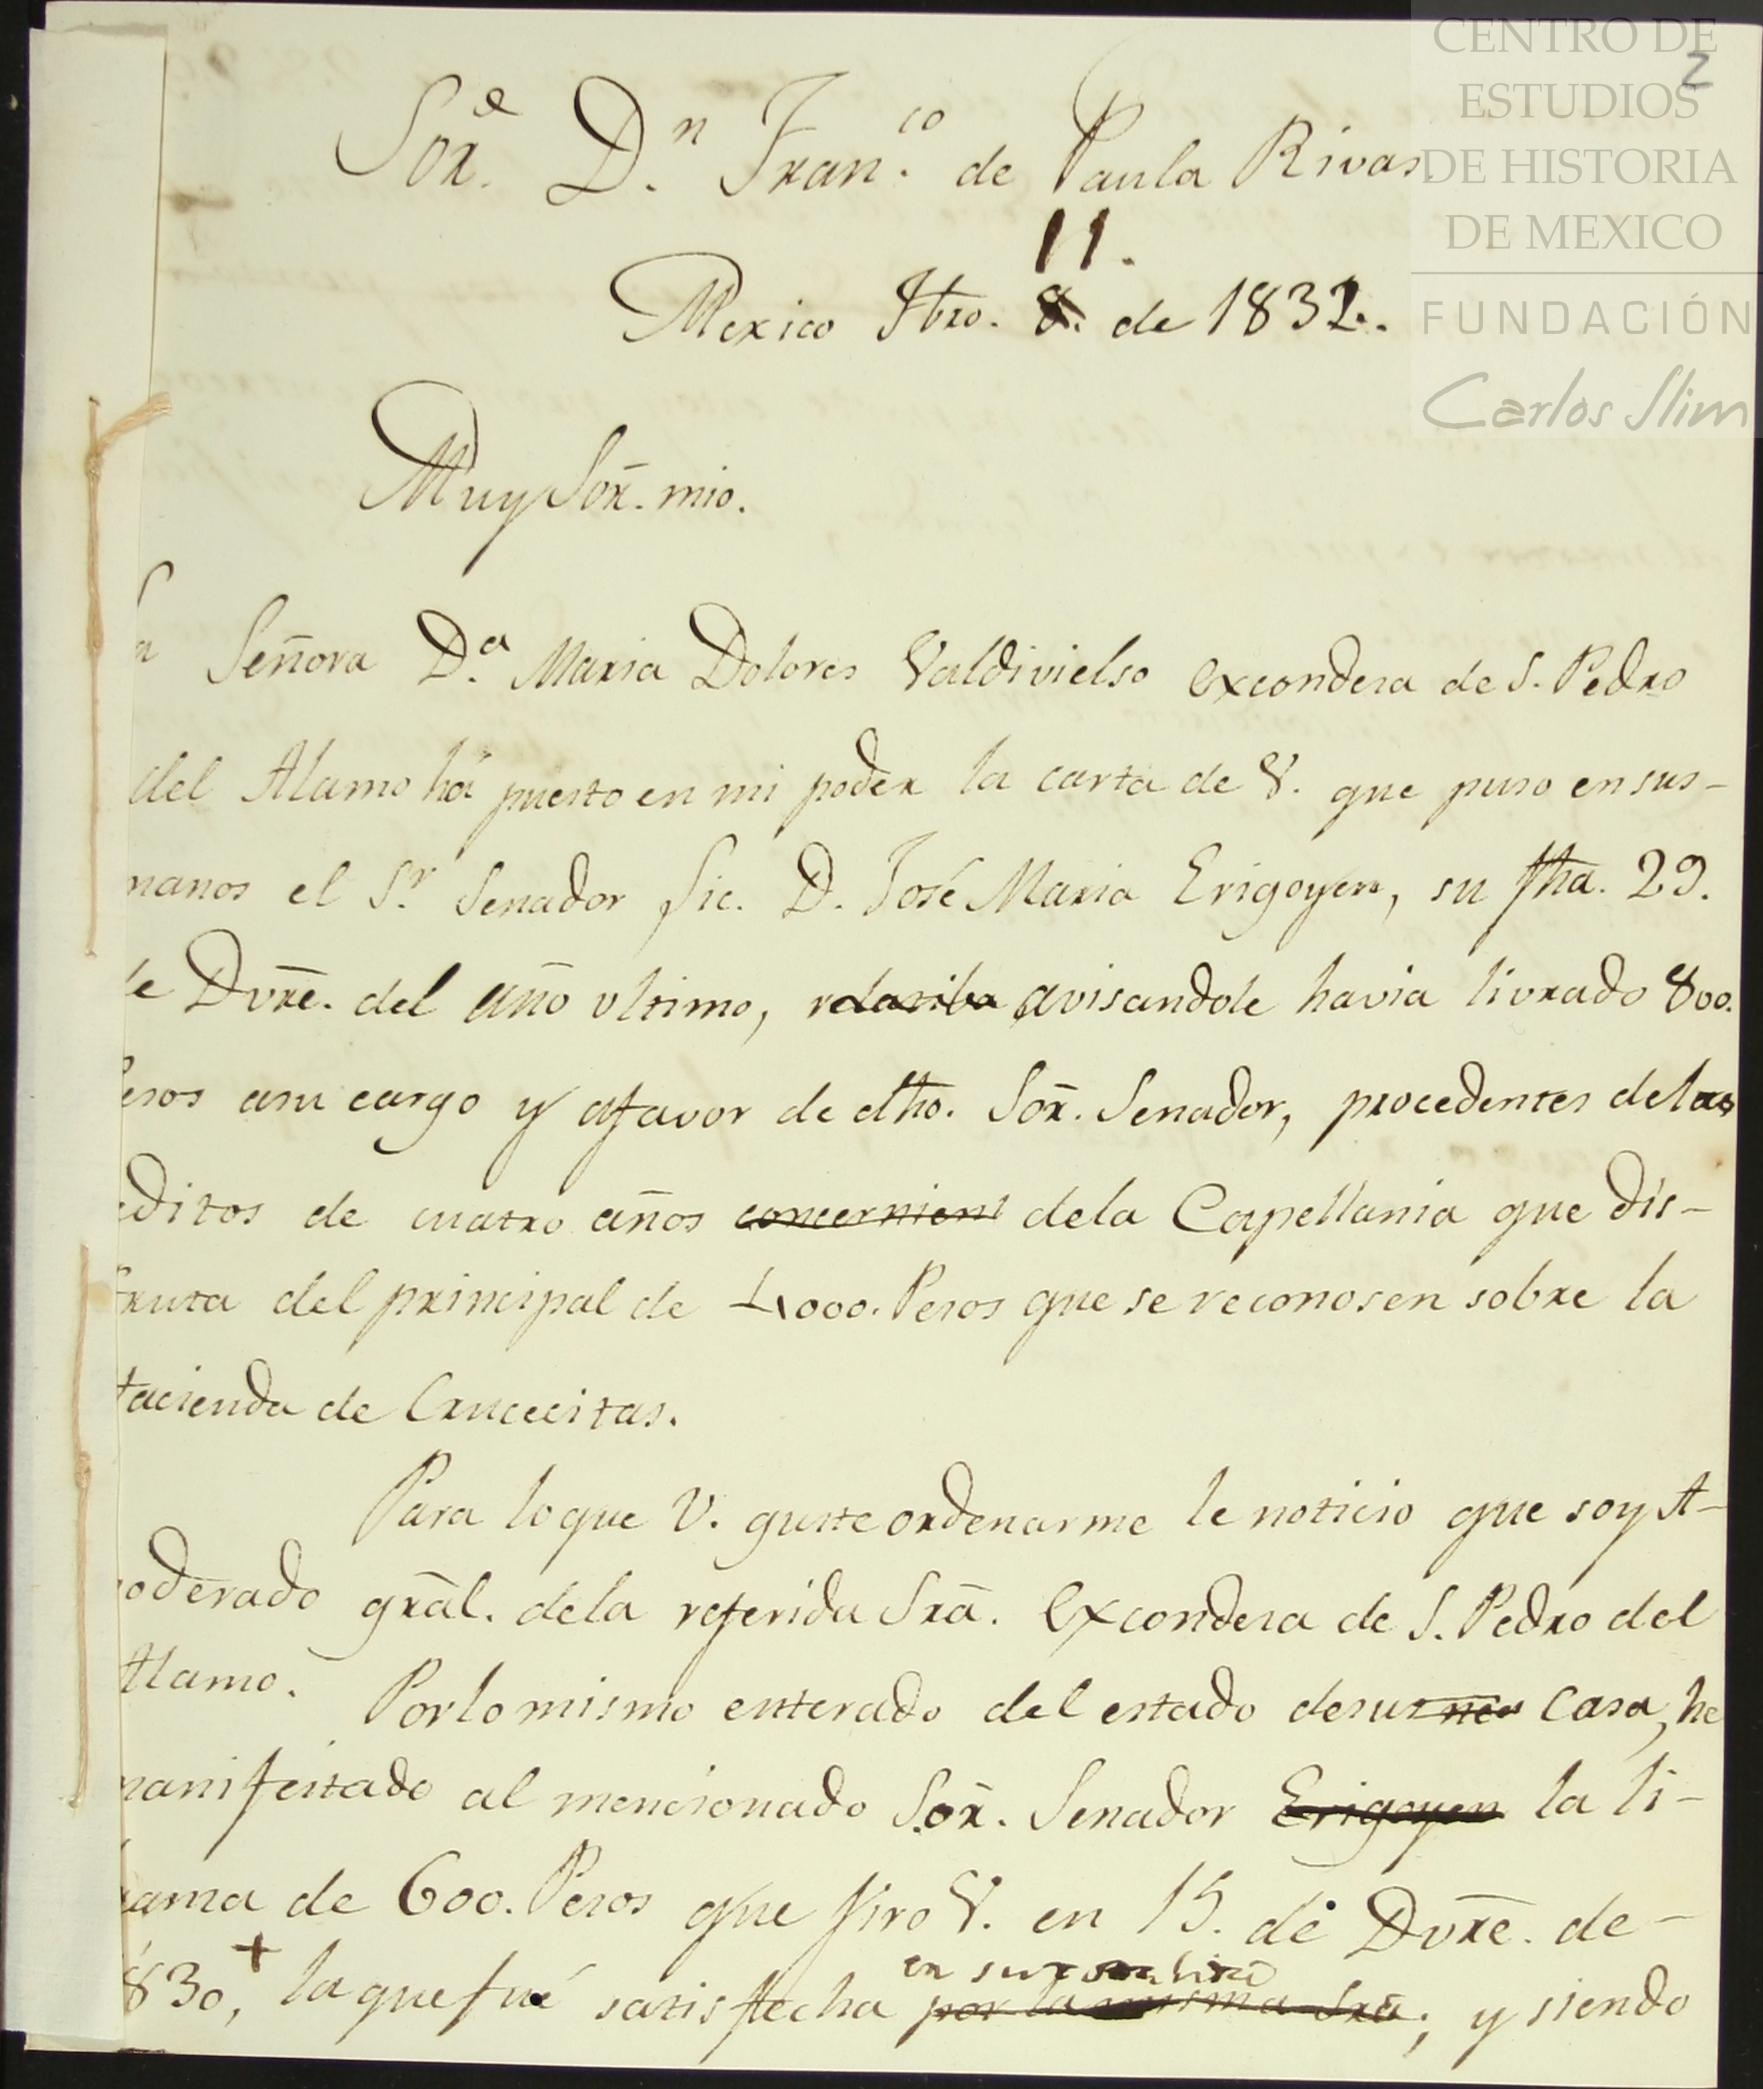 CENTRO DE
ESTUDIOS
DE HISTORIA
DE MEXICO
FUNDACIÓN
Carlos Slim
2
Sor. Dn. Franco. de Paula Rivas.
11.
Mexico Fbro. 8. de 1832.
Muy Sōr. mio.
Señora Da. Maria Dolores Valdivielso Excondesa de S. Pedro
del Alamo há puesto en mi poder la carta de V. que puso en sus-
manos el Sr. Senador Lic. D. José Maria Erigoyen, su fha. 29.
de Dvre. del año ultimo, avisandole havia livrado 800.
Pesos asu cargo y afavor de dho. Sōr. Senador, procedentes delos
reditos de cuatro años concernient dela Capellania que dis-
fruta del principal de 4000. Pesos que se reconosen sobre la
Hacienda de Crucecitas.
Para loque V. guste ordenarme le noticio que soy A-
poderado grāl. dela referida Srā. Excondesa de S. Pedro del
Alamo. Porlomismo enterado del estado desu Casa, he
manifestado al mencionado Sōr. Senador Erigoyen la li-
bama de 600. Pesos que Jiro V. en 15. de Dvre. de-
830,+ laquefué satisfecha por la misma Srā; y siendo
en su